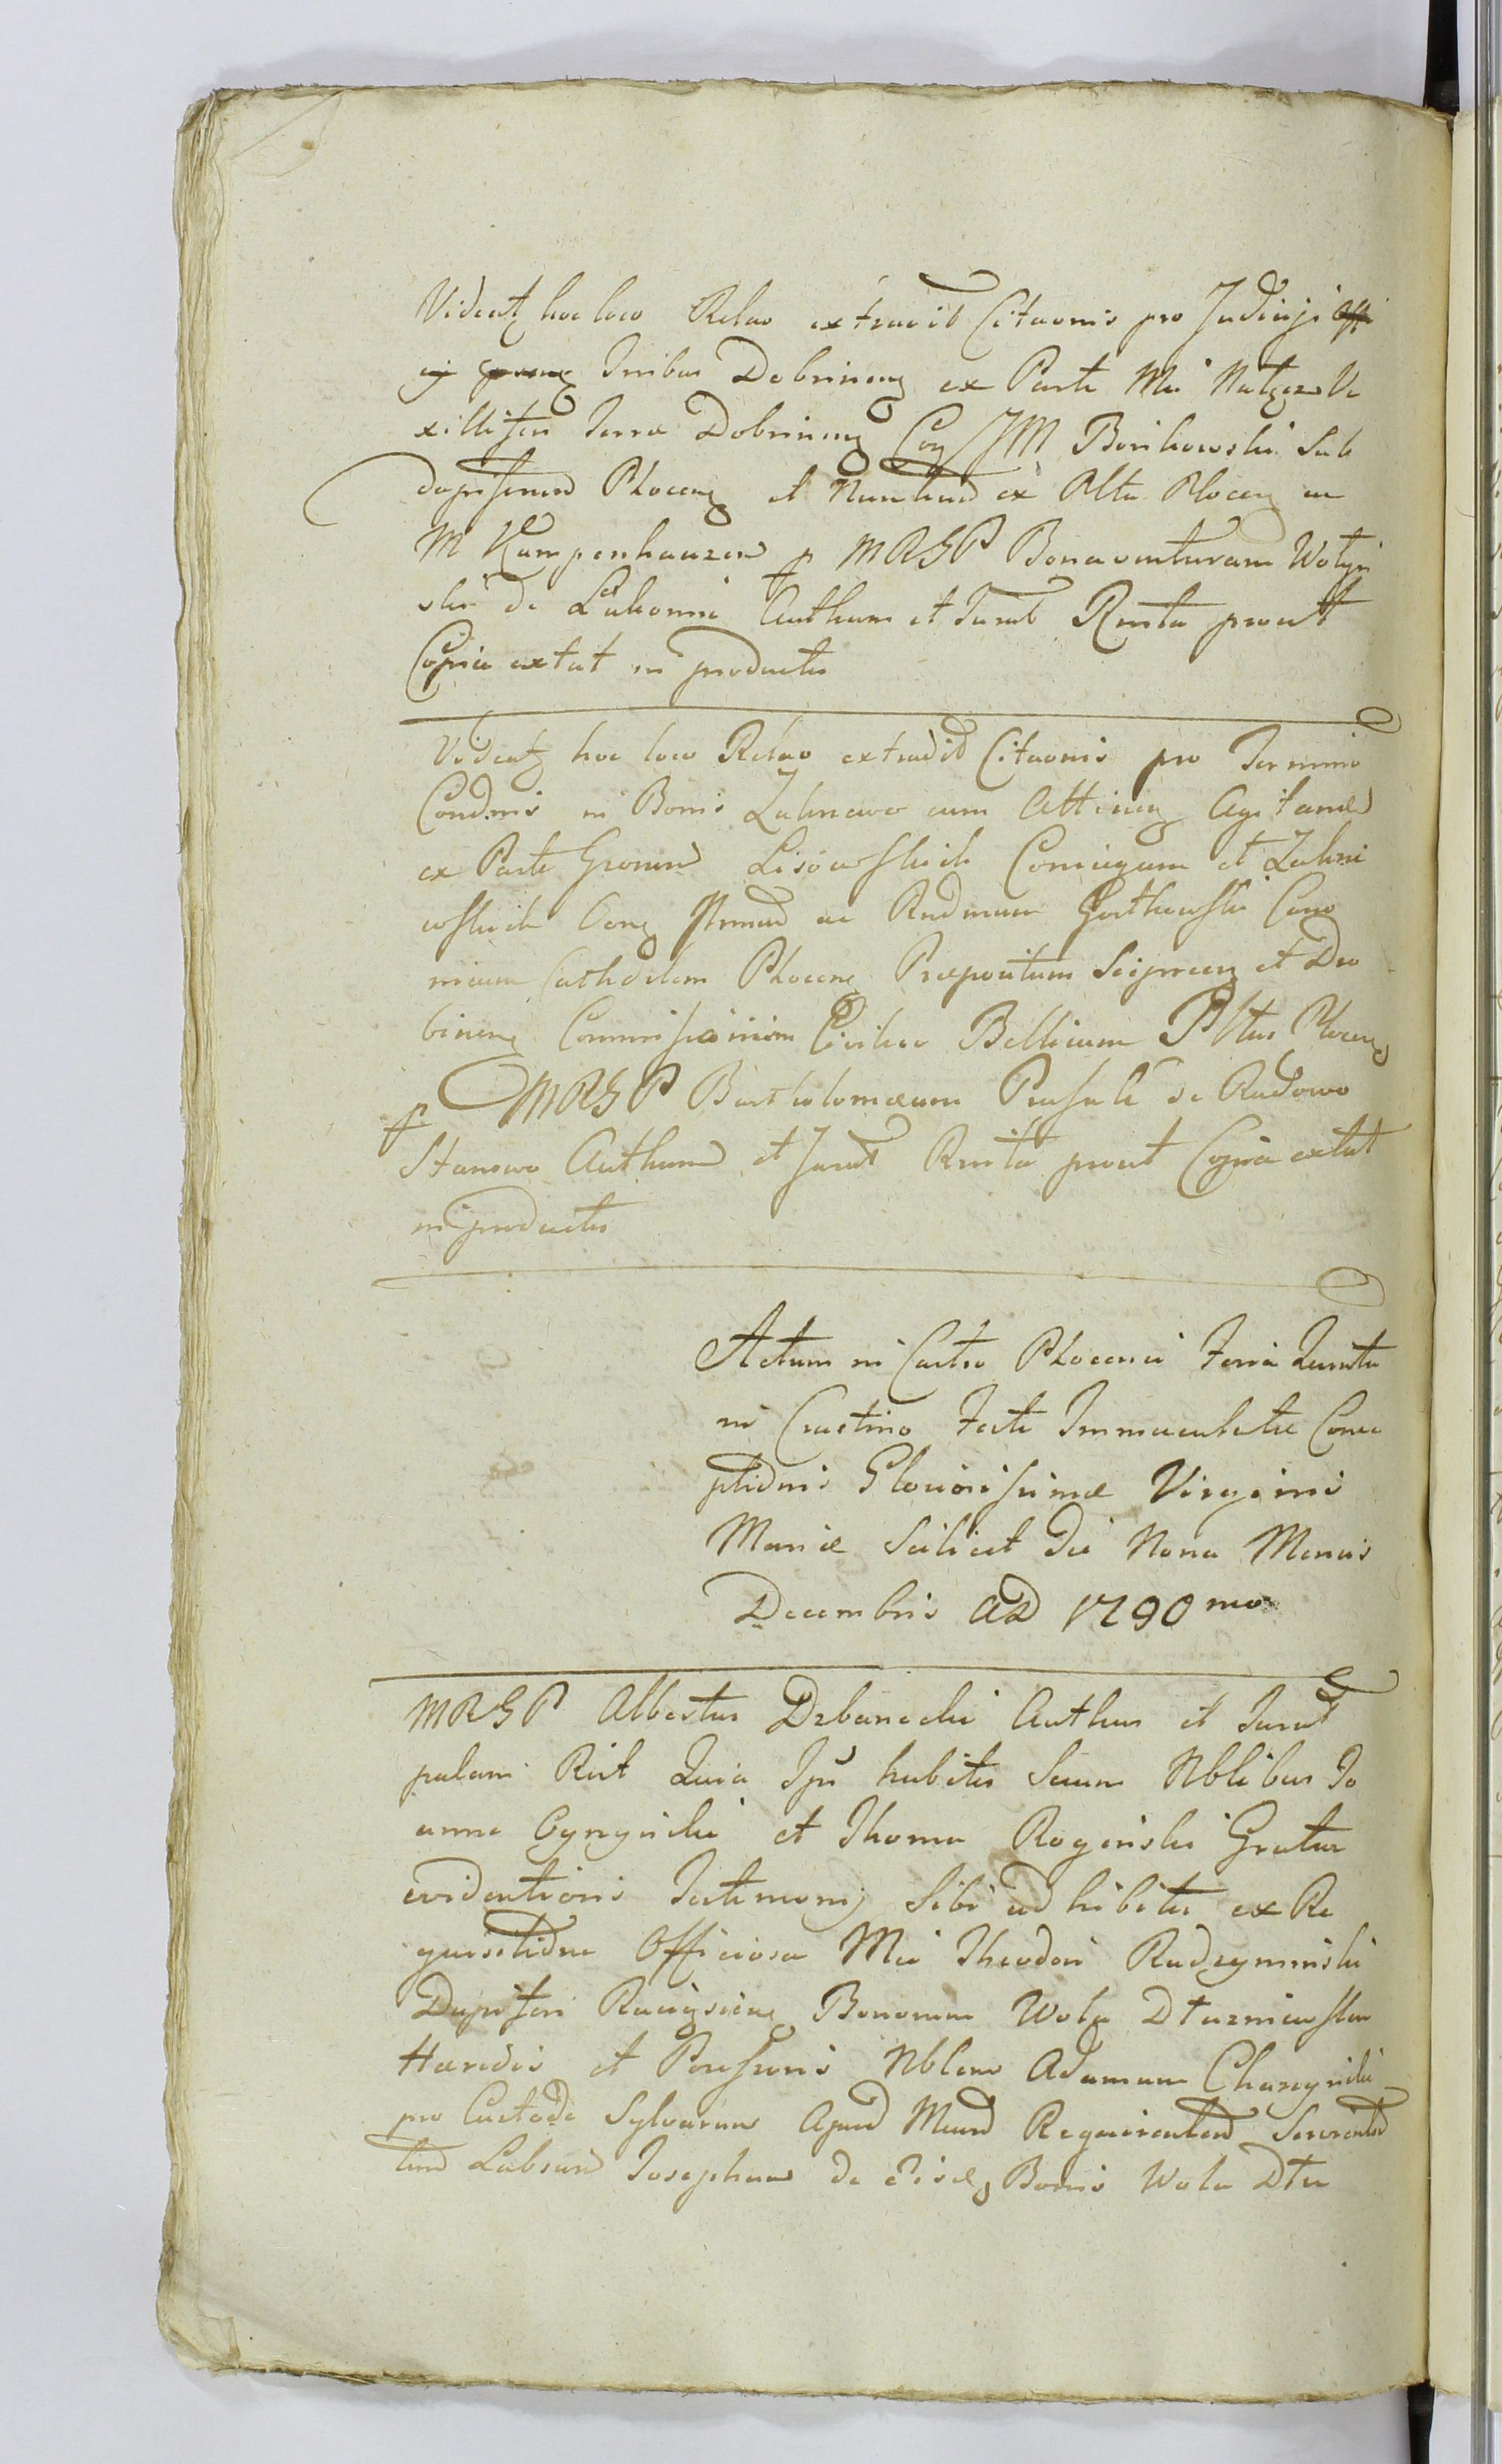 Videatz hoc loco Relao extradit Citaonis pro Judicijs
Tribus Dobrinenz ex Parte Mci Ve
xilliferi Terræ Dobrinenz Con JM Borikowski Sub
dapiferum Plocenz et Nuntium ex Pltu Plocen ac
M Kampenhauzen p MRGP Bonaventuram Wotyń
ski de Łukomie Authum et Jurat Rmta prout
Copia extat in productis
Videatz hoc loco Relao extradit Citaonis pro Termino
Condnis in Bonis Zalinowo cum Attinen Agitand
ex Parte Grorum Lisowskich Coniugum et Zalini
wskich Conz Itmum ac Rndmum Gostkowski Cano
nicum Cathdlem Plocenz Præpositum Sciprcenz et Dro
binenz Commissarium Civilno Bellicum Pltus Plocenz
p MRGP Bartholomæum Prusak de Radowo
Stanowo Authum et Jurat Rmta prout Copia extat
in productis
Actum in Castro Plocensi Feria Quinta
in Crastino Festi Immaculatæ Conce
ptionis Gloriosissimæ Virginis
Mariæ Scilicet die Nona Mensis
Decembris AD 1790mo
MRGP Albertus Drbanecki Authus et Jurat
palam Rit Quia Ipse habitis Secum Nblibus Jo
anne Cynynski et Thoma Rogiński Gratia
evidentioris Testimonij Sibi adhibitis ex Re
quisitione Officiosa Mci Theodori Radzyminski
Dapiferi Raciąsienz Bonorum Wola Dłużniewska
Hæredis et Possessoris Nblem Adamum
pro Custode Sylvarum Apud Mcum Requirentem Servientem
tum Labsum Josephum de Eisdz Bonis Wola Dłu